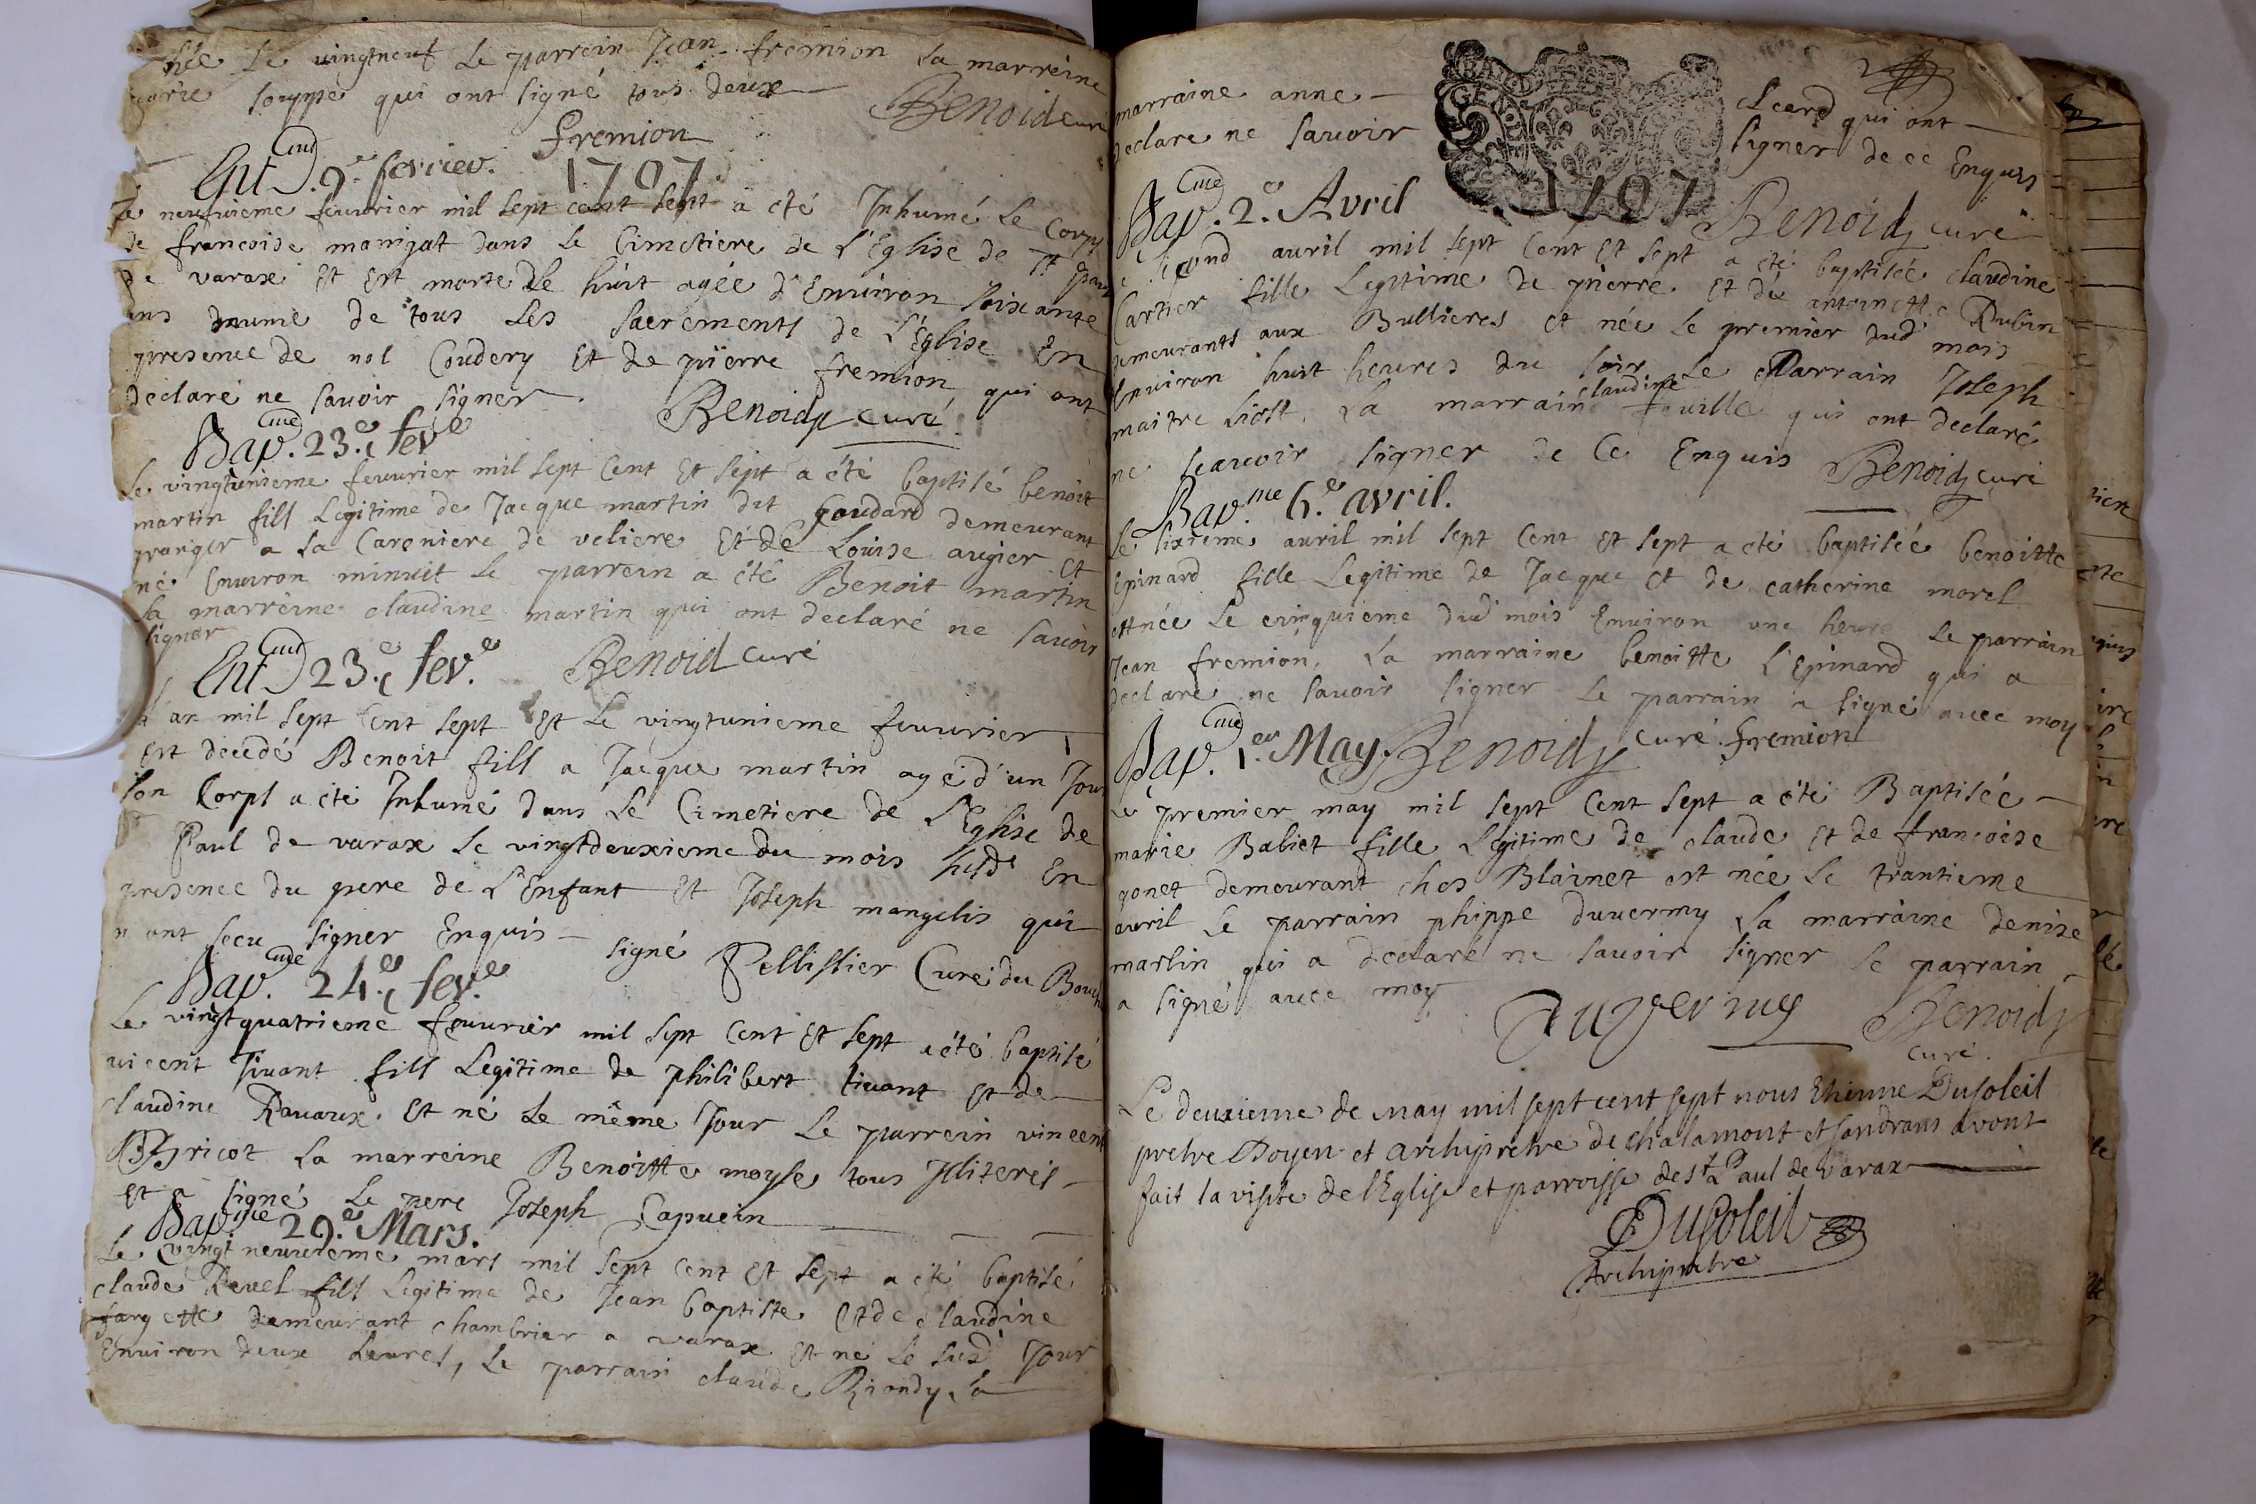 née Le vingtneuf Le parrein Jean fremion La marreine
marie souppe qui ont signé tous deux Benoid curé
fremion
Ent. 9.e fevrier. 1707
Le neuvieme feuvrier mil sept cent sept a eté Inhumé Le Corps
de francoise manigat dans Le Cimetiere de L'Eglise de St paul
de varax Et Est morte Le huit agée d'Environ soixante
ans de tous Les sacrements de L'Eglise En
presence de Coudery Et de pierre fremion qui ont
declaré ne savoir signer. Benoidy curé
Bap. 23.e fev.e
Le vingtunieme feuvrier mil sept Cent Et sept a été baptisé benoit
martin fils Legitime de Jacque martin dit goudard demeurant
granger a La Careniere de veliere Et de Louise augier Et
né Environ minuit Le parrein a été Benoit martin
La marreine claudine martin qui ont declaré ne savoir
signer
Ent 23.e fev.e Benoid curé
L'an mil sept Cent sept Et Le vingtunieme feuvrier
Est decedé Benoit fils a Jacque martin agé d'un Jour
son Corps a été Inhumé dans Le Cimetiere de L'Eglise de
Paul de varax Le vingtdeuxieme du mois susd En
presence du pere de L'Enfant Et Joseph mangelis qui
n'ont sceu signer Enquis signé Pellissier Curé du Bouch
Bap. 24.e fev.e
Le vingtquatrieme feuvrier mil sept Cent Et sept a été baptisé
vicent Tivant fils Legitime de philibert tivant Et de
claudine Ravaux. Et né Le même Jour Le parrein vincent
Apricot La marreine Benoitte moyse tous Iliterés
Et a signé Le pere Joseph Capucin
Bap.me 29.e Mars.
Le vingt neuvieme mars mil sept cent Et sept a été baptisé
claude Revel fils Legitime de Jean baptiste Et de claudine
fargette demeurant chambrier a varax Et né Le susd Jour
Environ deux heures, Le parrain claude Riondy La
marraine anne cleard qui ont
declare ne savoir signer de ce Enquis
GEN
1707
Bap. 2.e Avril Benoidy curé
Le second avril mil sept Cent Et sept a été baptisée claudine
Cartier fille Legitime de pierre Et de antoinette Rubin
demeurants aux Bullieres et née Le premier dud mois
Environ huit heures du soir Le Parrain Joseph
maitre La marraine claudine qui ont declaré
ne scavoir signer de Ce Enquis Benoidy curé
Bap.me 6.e avril.
Le sixieme avril mil sept Cent Et sept a eté baptisée benoitte
Epinard fille Legitime de Jacque Et de catherine morel
et née Le cinquieme dud mois Environ une heure Le parrain
Jean fremion, La marraine benoitte L'Epinard qui a
declaré ne savoir signer Le parrain a signé avec moy
Bap. 1.er May. Benoidy curé fremion
Le premier may mil sept Cent sept a été Baptisée
marie Babiet fille Legitime de claude Et de francoise
gonet demeurant ches Blainet est née Le trantieme
avril Le parrain phippe duvermy La marraine denise
martin qui a declaré ne savoir signer Le parrain
a signé avec moy Duvermy Benoidy
curé.
Le deuxieme de may mil sept cent sept nous Etienne Dusoleil
pretre Doyen et archipretre de chalamont et sandrans avont
fait la visite de l'Eglise et parroisse de st Paul de varax
Dusoleil
Archipretre